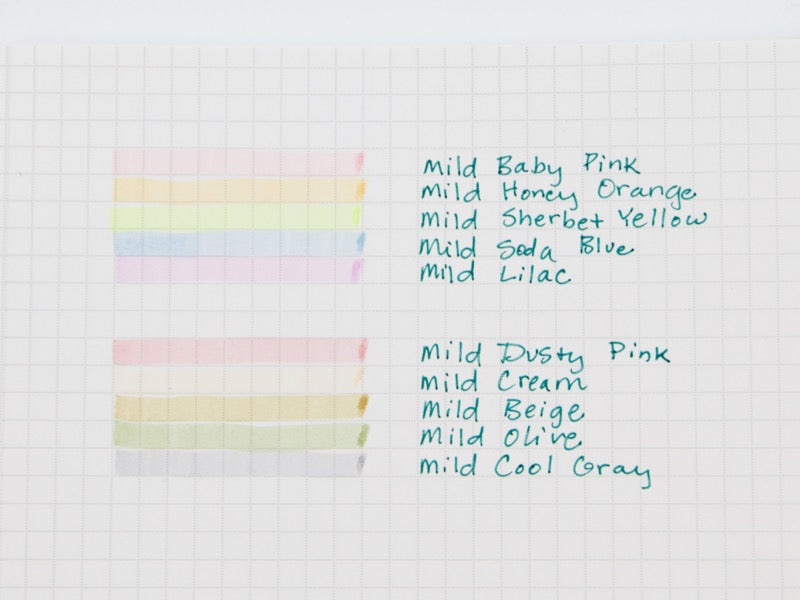 Mild Baby Pink
Mild Honey Orange
Mild Sherbet Yellow
Mild Soda Blue
Mild Lilac
Mild Dusty Pink
Mild Cream
Mild Beige
Mild Olive
Mild Cool Gray